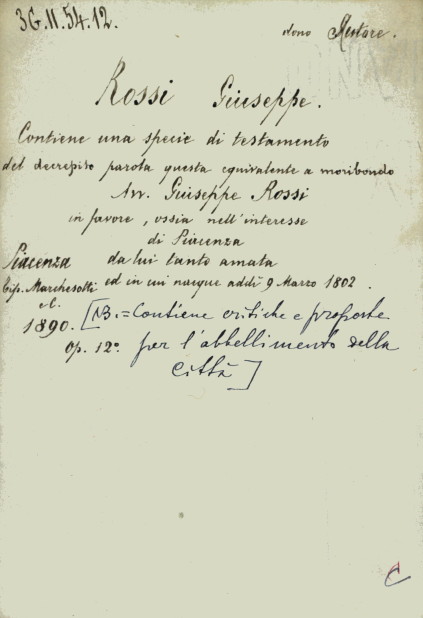 3G.II.54.12.
dono Restore.
Rossi Giuseppe.
Contiene una specie di testamento
del decrepito parola questa equivalente a moribondo
Avv. Giuseppe Rossi
in favore, ossia nell'interesse
di Piacenza
Piacenza da lui tanto amata
Tip. Marchesotti ed in cui nacque addì 9 Marzo 1802.
1890. [NB.=Contiene critiche e proposte
op. 12° per l'abbellimento della
città]